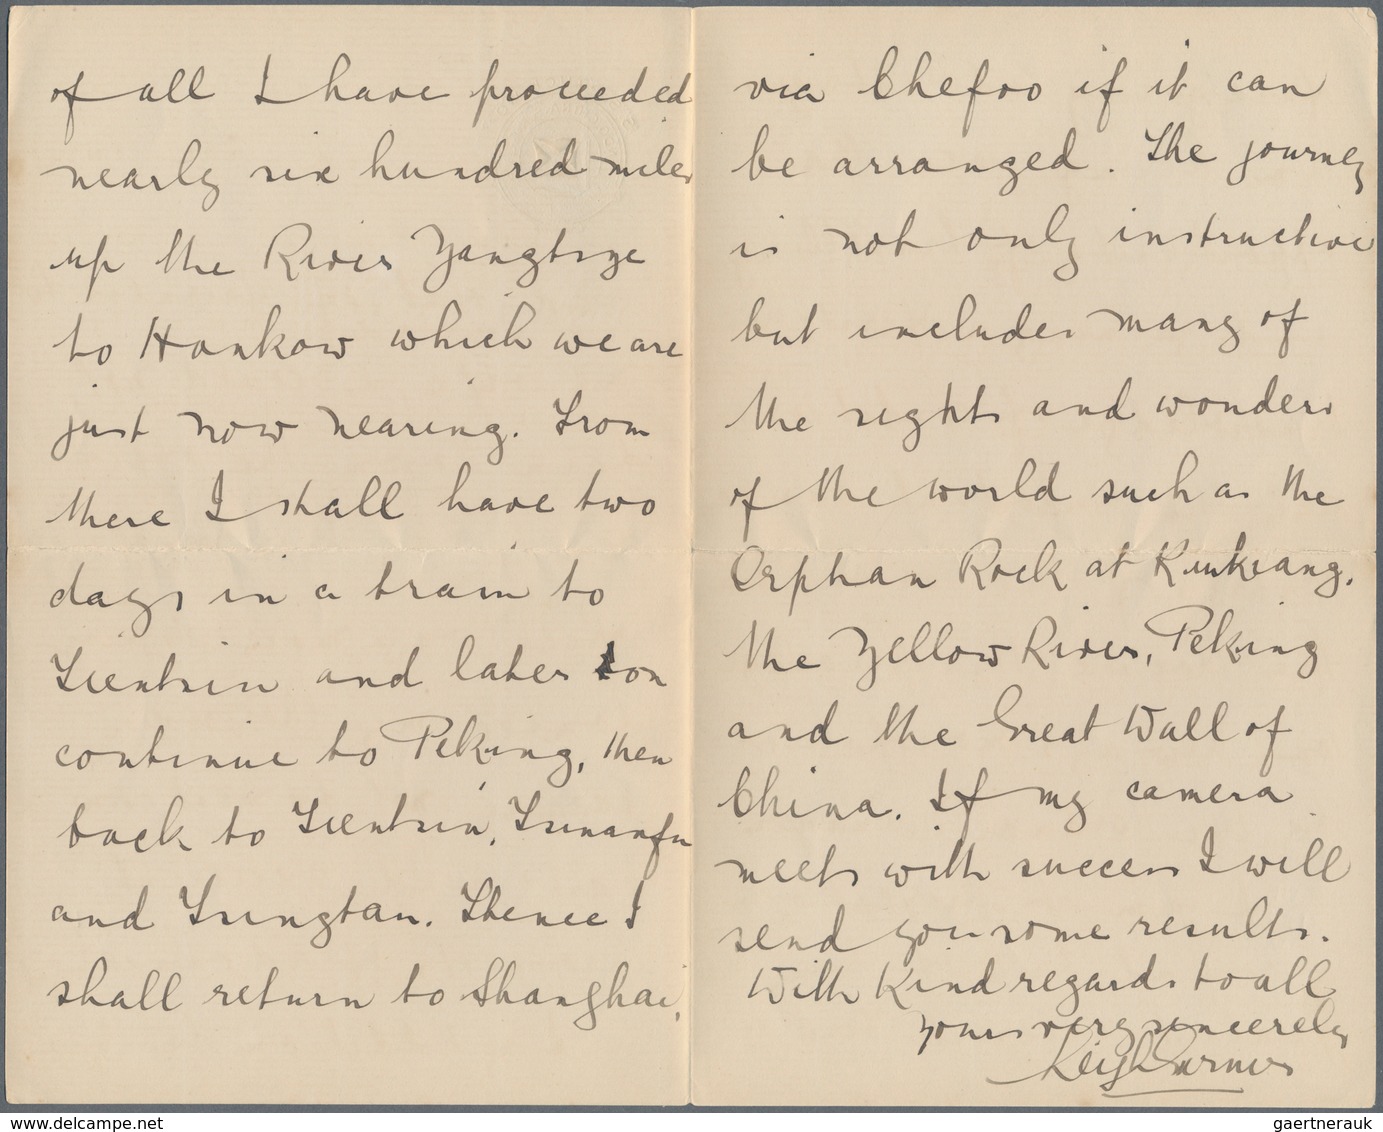 of all I have proceeded
nearly six hundred miles
up the River Yangtsze
to Hankow which we are
just now nearing. From
there I shall have two
days in a train to
Tientsin and later on
continue to Peking, then
back to Tientsin, Tsinanfu
and Tsingtau. Thence I
shall return to Shanghai,
via Chefoo if it can
be arranged. The journey
is not only instructive
but includes many of
the sights and wonders
of the world such as the
Orphan Rock at Kiukiang,
the Yellow River, Peking
and the Great Wall of
China. If my camera
meets with success I will
send you some results.
With Kind regards to all
yours very sincerely
Leigh
gaertnerauk